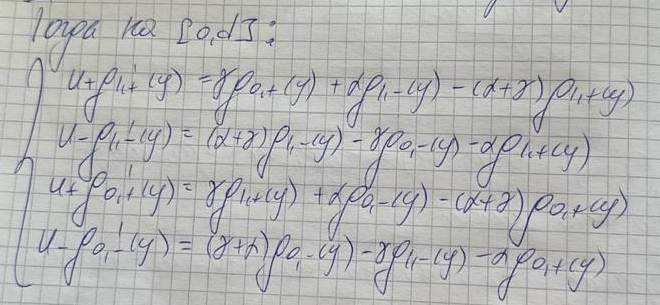 Тогда на [0,d]:
u+ρ₁,₊'(y) = γρ₀,₊(y) + αρ₁,₋(y) - (α+γ)ρ₁,₊(y)
u-ρ₁,₋'(y) = (α+γ)ρ₁,₋(y) - γρ₀,₋(y) - αρ₁,₊(y)
u+ρ₀,₊'(y) = γρ₁,₊(y) + αρ₀,₋(y) - (α+γ)ρ₀,₊(y)
u-ρ₀,₋'(y) = (γ+α)ρ₀,₋(y) - γρ₁,₋(y) - αρ₀,₊(y)